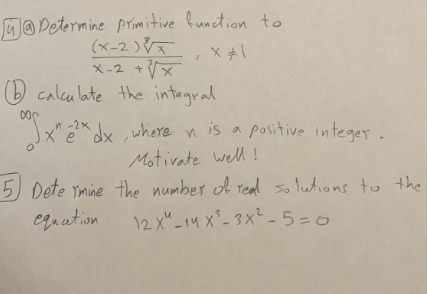 4 (a) Determine primitive function to
(x-2)∛x / (x-2+∛x) , x ≠ 1
(b) calculate the integral
∫₀^∞ xⁿ e^(-2x) dx , where n is a positive integer.
Motivate well!
5 Determine the number of real solutions to the
equation 12x⁴-14x³-3x²-5=0